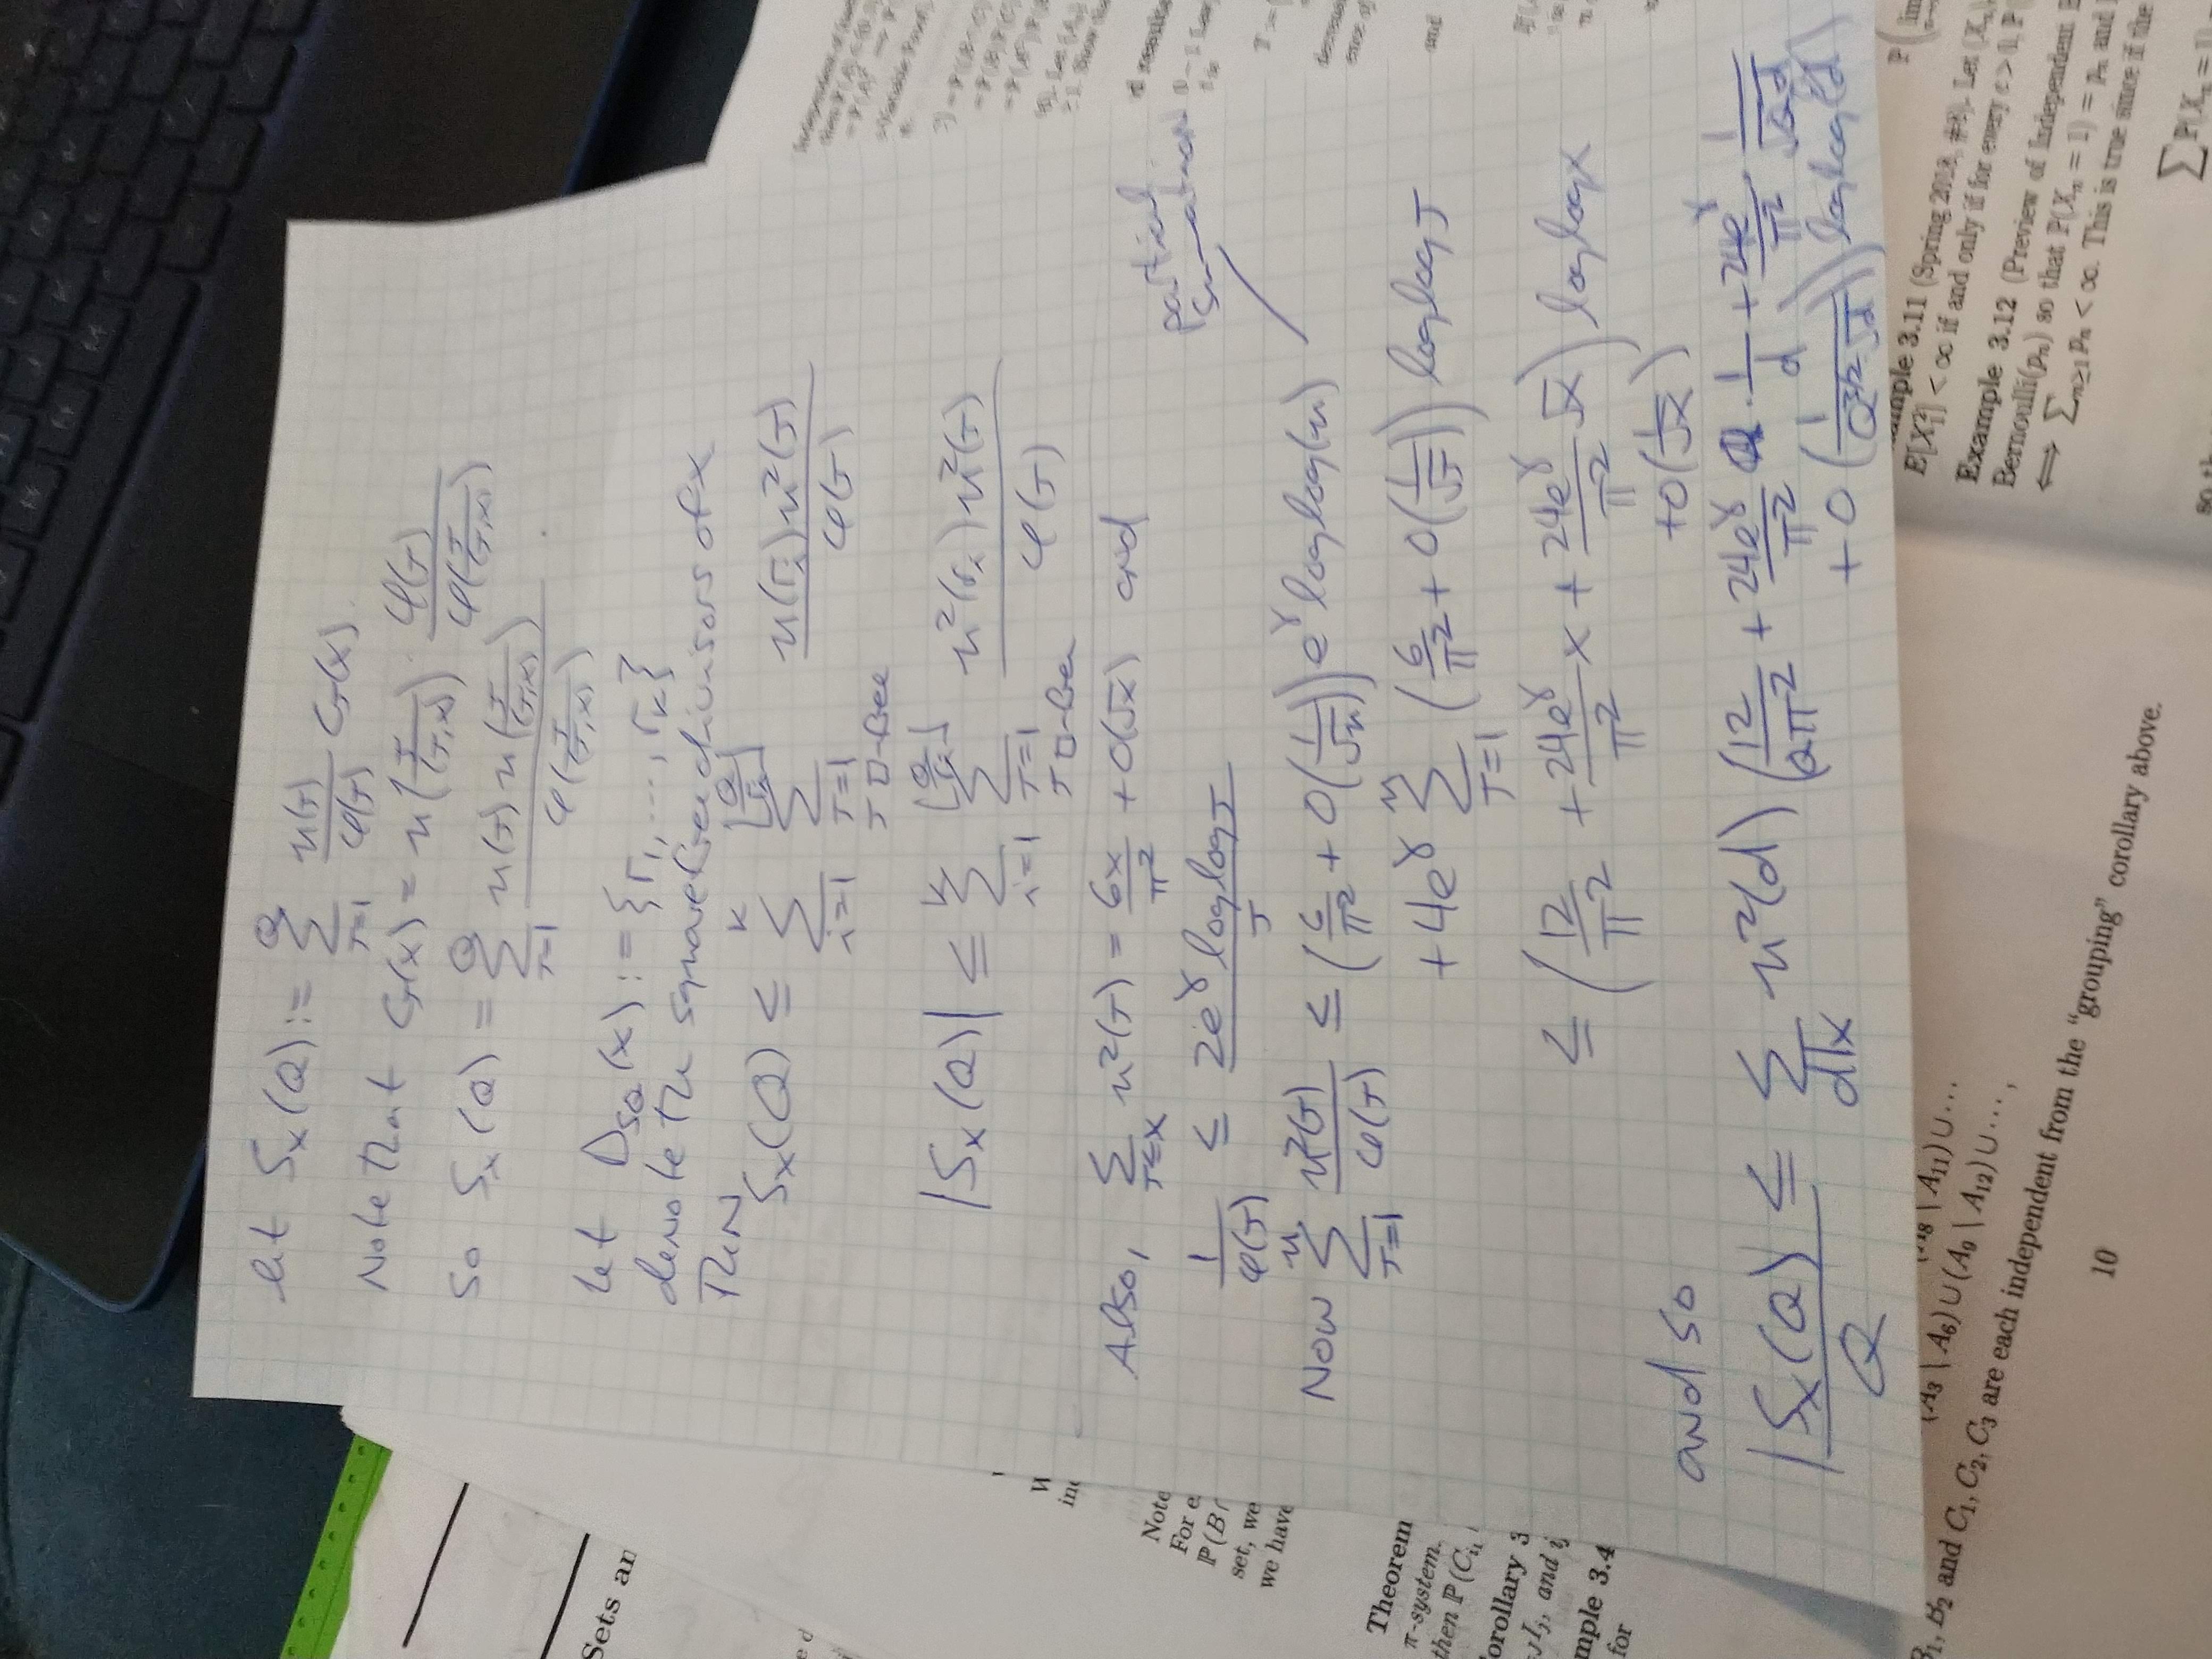 let S_x(Q) := Σ_{J=1}^{Q} μ(J)/φ(J) C_J(x).
Note that C_J(x) = μ(J/(J,x)) · φ(J)/φ(J/(J,x))
so S_x(Q) = Σ_{J=1}^{Q} μ(J) μ(J/(J,x)) / φ(J/(J,x)) .
Let D_{SQ}(x) := {r_1, ..., r_k}
denote the squarefree divisors of x
Then
S_x(Q) ≤ Σ_{i=1}^{k} Σ_{J=1, J □-free}^{⌊Q/r_i⌋} μ(r_i) μ²(J) / φ(J)
|S_x(Q)| ≤ Σ_{i=1}^{k} Σ_{J=1, J □-free}^{⌊Q/r_i⌋} μ²(r_i) μ²(J) / φ(J)
Also, Σ_{J≤x} μ²(J) = 6x/π² + O(√x) and
1/φ(J) ≤ 2e^γ log log J / J
partial
summation
Now Σ_{J=1}^{n} μ²(J)/φ(J) ≤ (6/π² + O(1/√n)) e^γ log log(n)
+ 4e^γ Σ_{J=1}^{n} (6/π² + O(1/√J)) log log J
≤ (12/π² + 24e^γ/π² x + 24e^γ/π² √x) log log x
+ O(1/√x)
and so
|S_x(Q)|/Q ≤ Σ_{d|x} μ²(d) (12/(Qπ²) + 24e^γ/π² · 1/d + 24e^γ/π² · 1/√(Qd)
+ O(1/(Q^{3/2} √d))) log log(d)
Sets an
Note
For e
P(B ∩
set, we
we have
Theorem
π-system.
then P(C_{i1}
orollary 3
I_j, and i
mple 3.4
for
(A_3 \ A_6) ∪ (A_9 \ A_12) ∪ ⋯ ,
B_1, B_2 and C_1, C_2, C_3 are each independent from the “grouping” corollary above.
10
ample 3.11 (Spring 2018, #8). Let (X_n)
E[X_1²] < ∞ if and only if for every ε > 0, P
Example 3.12 (Preview of Independent B
Bernoulli(p_n) so that P(X_n = 1) = p_n and
⟺ Σ_{n≥1} p_n < ∞. This is true since if the
Σ P(X_n = 1)